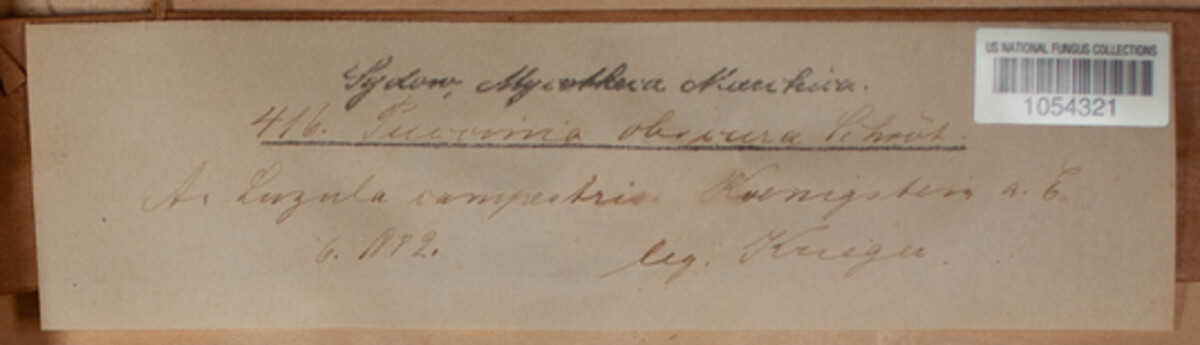 US NATIONAL FUNGUS COLLECTIONS
1054321
Sydow, Mycotheca Marchica.
416. Puccinia obscura Schröt.
A. Luzula campestris. Koenigstein a. E.
6. 1882. leg. Krieger.